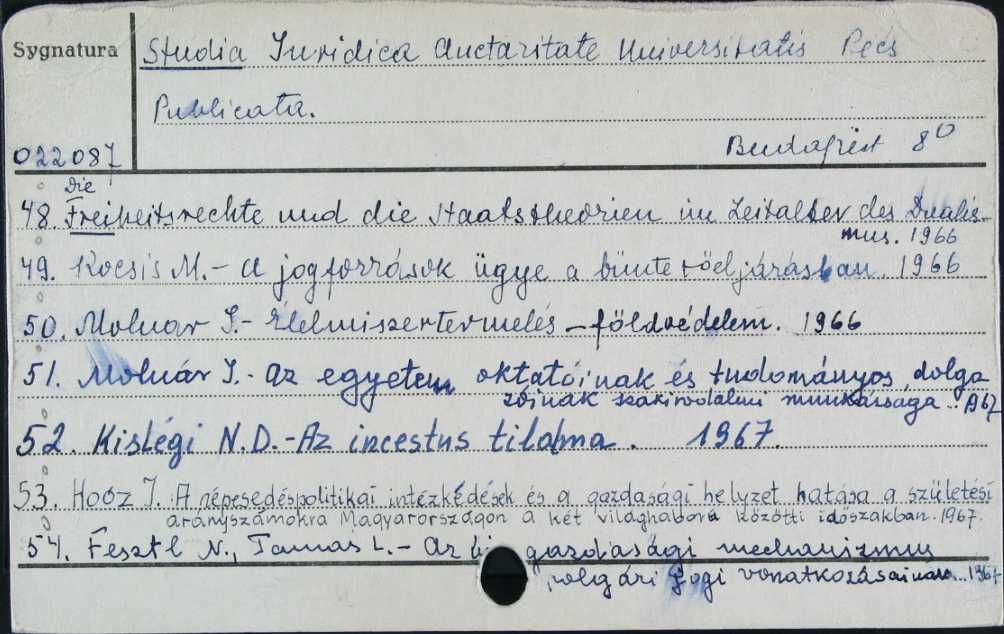 Sygnatura
Studia Iuridica auctoritate Universitatis Pécs
Publicata.
Budapest 8°
022087
Die
48. Freiheitsrechte und die Staatstheorien im Zeitalter des Dualis-
mus. 1966
49. Kocsis M. - A jogforrások ügye a büntetőeljárásban. 1966
50. Molnar I. - Élelmiszertermelés - földvédelem. 1966
51. Molnár I. - az egyetem oktatóinak és tudományos dolgo
zóinak szakirodalmi munkássága. 1967
52. Kislégi N.D. - Az incestus tilalma. 1967.
53. Hoóz I. A népesedéspolitikai intézkedések és a gazdasági helyzet hatása a születési
arányszámokra Magyarországon a két világháború közötti időszakban. 1967.
54. Fesztl N., Tamas L. - Az gazdasági mechanizmus
polgári jogi vonatkozásai